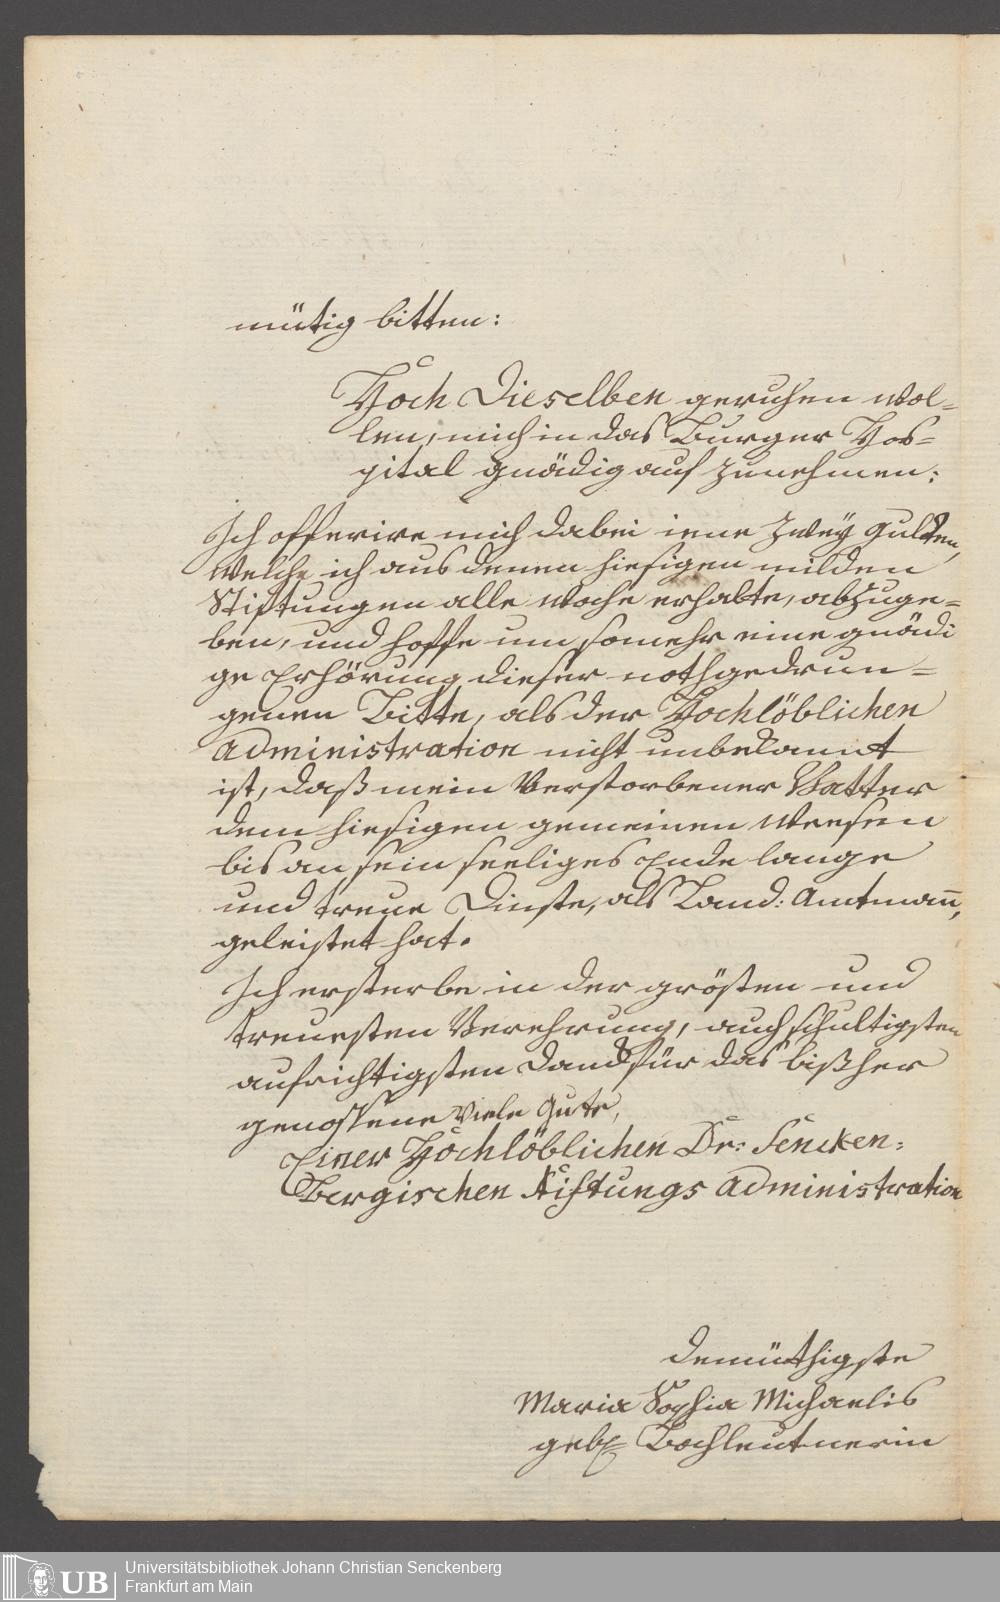 mütig bitten:
Hoch Dieselben geruhen wol=
len, mich in das Burger Hos=
pital gnädig auf zunehmen:
Ich offerire mich dabei iene zwey Gulden,
welche ich aus denen hiesigen milden
Stiftungen alle Woche erhalte, abzuge=
ben, und hoffe um somehr eine gnädi
ge Erhörung dieser nothgedrun=
genen Bitte, als der Hochlöblichen
Administration nicht unbekannt
ist, daß mein Verstorbener Vatter
dem hiesigen gemeinen Weesen
bis an sein seeliges Ende lange
und treue Dinste, als Land: Amtman̄,
geleistet hat.
Ich ersterbe in der grösten und
treuesten Verehrung, auch schultigsten
aufrichtigsten Dank für das bißher
genossene viele Gute,
Einer Hochlöblichen Dr: Sencken=
Bergischen Stiftungs Administration
demüthigste
Maria Sophia Michaelis
geb. Bochleutnerin
Universitätsbibliothek Johann Christian Senckenberg
Frankfurt am Main
UB